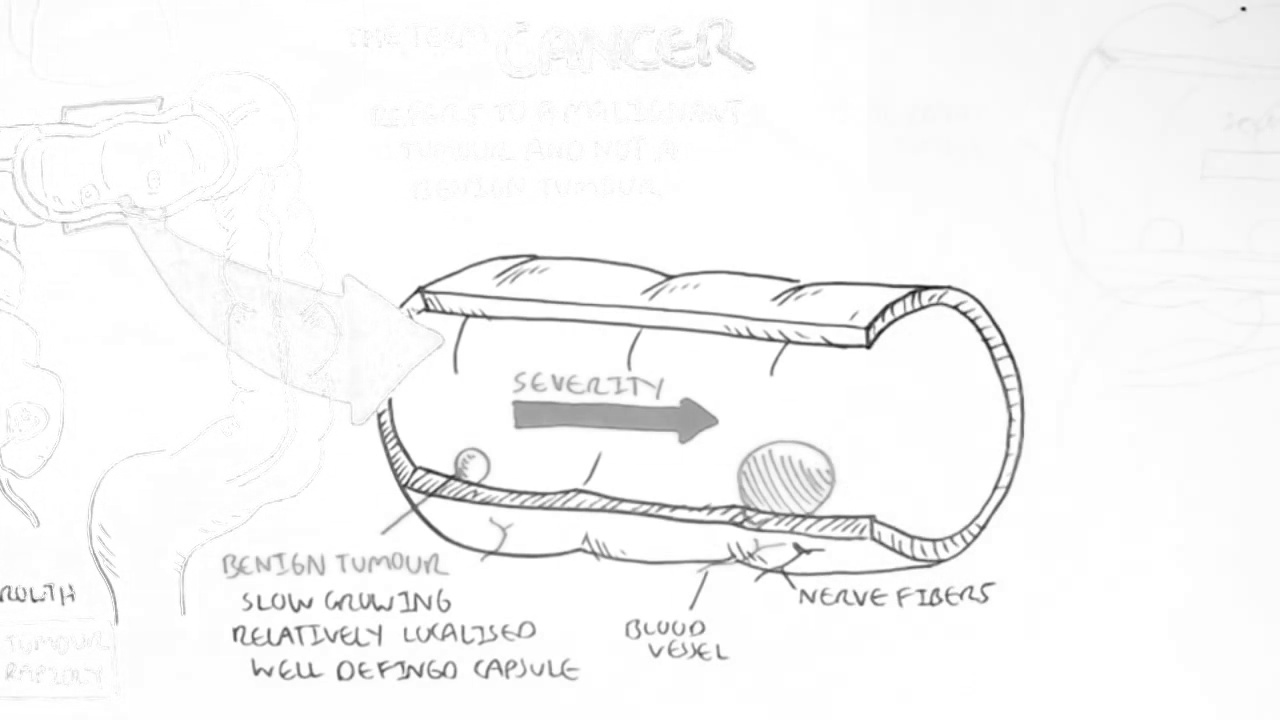 THE TERM CANCER
REFERS TO A MALIGNANT
TUMOUR AND NOT A
BENIGN TUMOUR
SEVERITY
BENIGN TUMOUR
SLOW GROWING
RELATIVELY LOCALISED
WELL DEFINED CAPSULE
BLOOD
VESSEL
NERVE FIBERS
TUMOUR
RAPIDLY